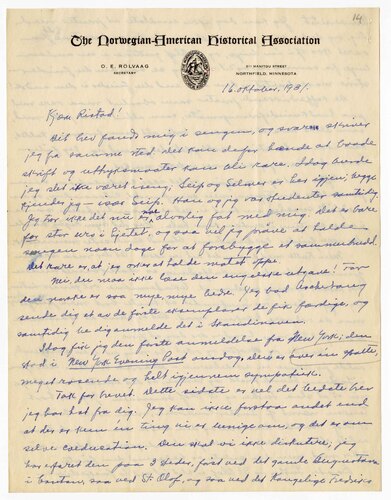 14
The Norwegian-American Historical Association
O. E. ROLVAAG
SECRETARY
311 MANITOU STREET
NORTHFIELD, MINNESOTA
16. oktober, 1931.
Kjære Ristad!
Dit brev fandt mig i sengen, og svaret skriver
jeg fra samme sted. Det kan derfor hænde at baade
skrift og uttryksmaater kan bli rare. Idag burde
jeg ikke været i seng, Seip og Selmer er her igjen; begge
kjender jeg — især Seip. Han og jeg var studenter samtidig.
Jeg tror ikke det er noe alvorlig fat med mig. Det er bare
for stor uro i hjertet, og saa vil jeg prøve at holde
sengen noen dage for at forebygge et sammenbrudd.
Det rare er, at jeg orker at holde motet oppe.
Nei, du maa ikke læse den engelske utgave! For
den norske er saa mye, mye bedre! Jeg bad
sende dig et av de første eksemplarer de fik færdige, og
samtidig be dig anmelde det i Skandinaven.
Idag fik jeg den første anmeldelse fra New York; den
stod i New York Evening Post onsdag, den er over en spalte,
meget rosende og helt igjennem sympatisk.
Tak for brevet. Dette sidste er vel det bedste brev
jeg har hat fra dig. Jeg kan ikke forstaa andet end
at der er kun én ting vi er uenige om, og det er om
selve coeducation. Den skal vi ikke diskutere; jeg
har erfaret den paa 3 steder, først ved det gamle Augustana
i Canton, saa ved St. Olaf, og saa ved det Kongelige Frederiks